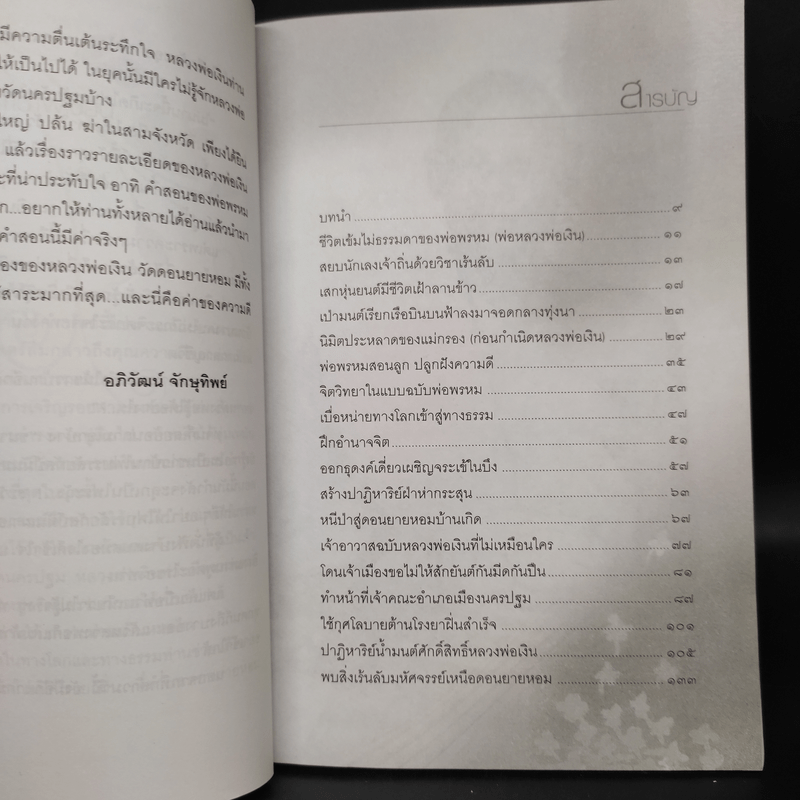 มีความตื่นเต้นระทึกใจ หลวงพ่อเงินท่าน
ให้เป็นไปได้ ในยุคนั้นมีใครไม่รู้จักหลวงพ่อ
วัดนครปฐมบ้าง
ใหญ่ ปล้น ฆ่าในสามจังหวัด เพียงได้ยิน
แล้วเรื่องราวรายละเอียดของหลวงพ่อเงิน
ะที่น่าประทับใจ อาทิ คำสอนของพ่อพรหม
ก...อยากให้ท่านทั้งหลายได้อ่านแล้วนำมา
คำสอนนี้มีค่าจริงๆ
องของหลวงพ่อเงิน วัดดอนยายหอม มีทั้ง
สาระมากที่สุด...และนี่คือค่าของความดี
อภิวัฒน์ จักษุทิพย์
สารบัญ
บทนำ ๙
ชีวิตเข้มไม่ธรรมดาของพ่อพรหม (พ่อหลวงพ่อเงิน) ๑๑
สยบนักเลงเจ้าถิ่นด้วยวิชาเร้นลับ ๑๓
เสกหุ่นยนต์มีชีวิตเฝ้าลานข้าว ๑๗
เป่ามนต์เรียกเรือบินบนฟ้าลงมาจอดกลางทุ่งนา ๒๓
นิมิตประหลาดของแม่กรอง (ก่อนกำเนิดหลวงพ่อเงิน) ๒๙
พ่อพรหมสอนลูก ปลูกฝังความดี ๓๕
จิตวิทยาในแบบฉบับพ่อพรหม ๔๓
เบื่อหน่ายทางโลกเข้าสู่ทางธรรม ๔๗
ฝึกอำนาจจิต ๕๑
ออกธุดงค์เดี่ยวเผชิญจระเข้ในบึง ๕๗
สร้างปาฏิหาริย์ฝ่าห่ากระสุน ๖๓
หนีป่าสู่ดอนยายหอมบ้านเกิด ๖๗
เจ้าอาวาสฉบับหลวงพ่อเงินที่ไม่เหมือนใคร ๗๗
โดนเจ้าเมืองขอไม่ให้สักยันต์กันมีดกันปืน ๘๑
ทำหน้าที่เจ้าคณะอำเภอเมืองนครปฐม ๘๗
ใช้กุศโลบายต้านโรงยาฝิ่นสำเร็จ ๑๐๑
ปาฏิหาริย์น้ำมนต์ศักดิ์สิทธิ์หลวงพ่อเงิน ๑๐๕
พบสิ่งเร้นลับมหัศจรรย์เหนือดอนยายหอม ๑๓๓